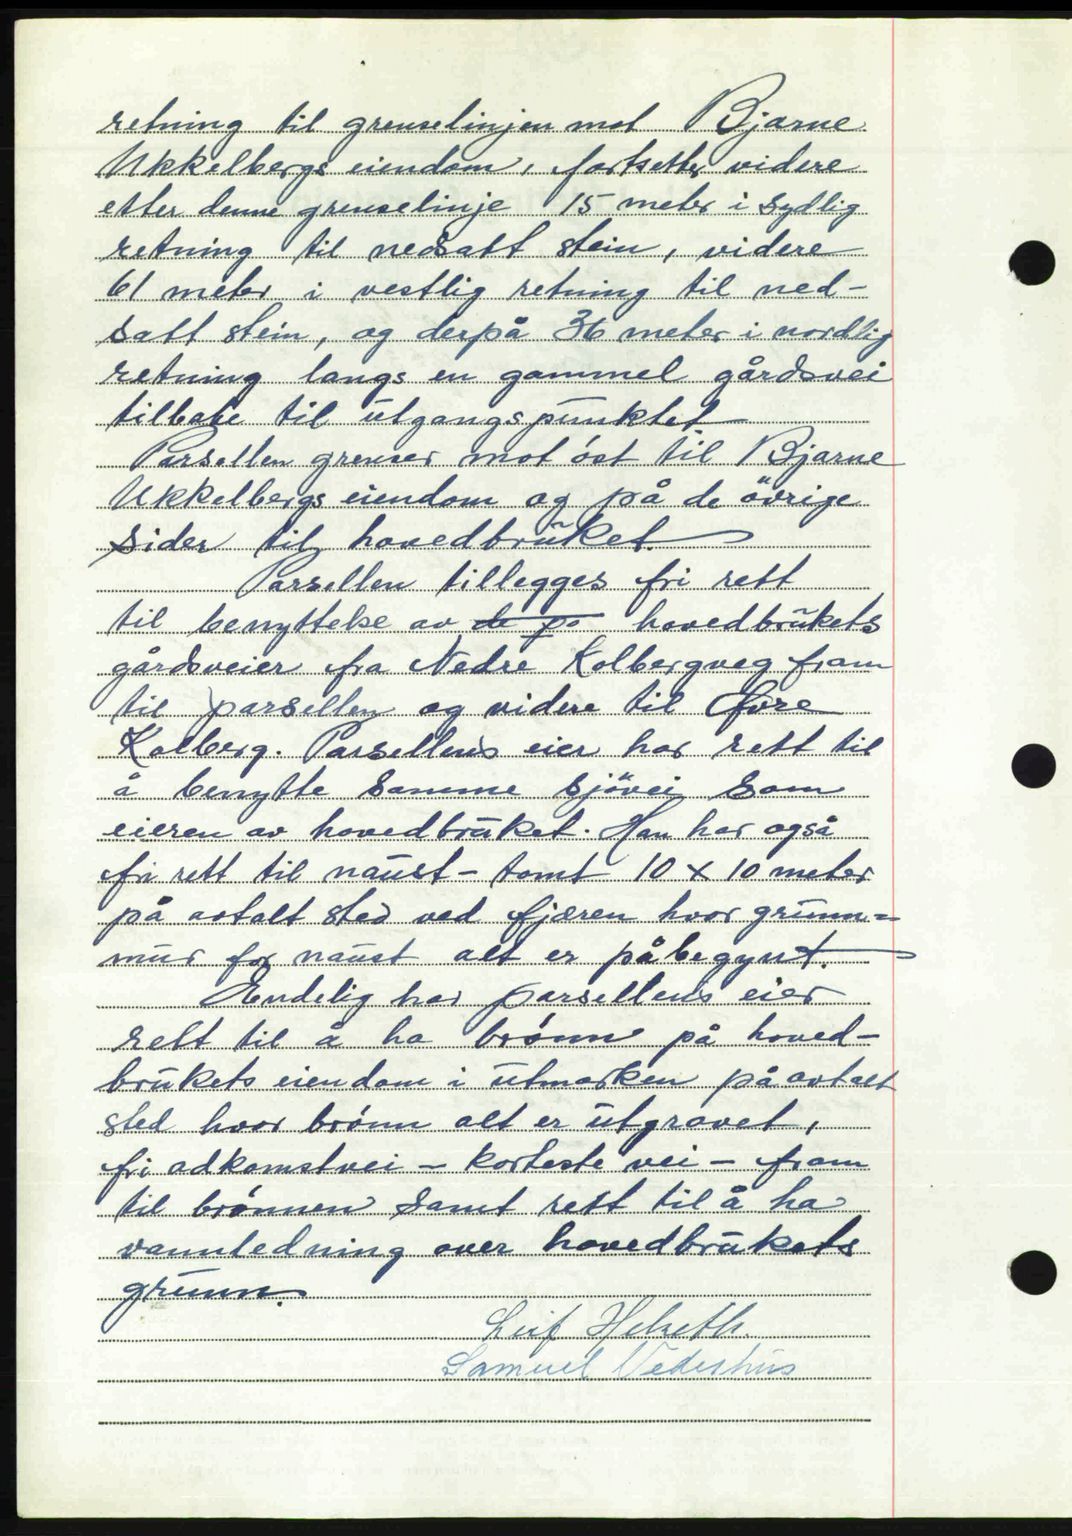 retning til grenselinjen mot Bjarne
Ukkelbergs eiendom, fortsetter videre
etter denne grenselinje 15 meter i sydlig
retning til nedsatt stein, videre
61 meter i vestlig retning til ned-
satt stein, og derpå 36 meter i nordlig
retning langs en gammel gårdsvei
tilbake til utgangspunktet
Parsellen grenser mot öst til Bjarne
Ukkelbergs eiendom og på de övrige
sider til hovedbruket.
Parsellen tillegges fri rett
til benyttelse av de på hovedbrukets
gårdsveier fra Nedre Kolbergveg fram
til parsellen og videre til Övre
Kolberg. Parsellens eier har rett til
å benytte samme sjövei som
eieren av hovedbruket. Han har også
fri rett til naust-tomt 10 x 10 meter
på avtalt sted ved fjæren hvor grunn-
mur for naust alt er påbegynt.
Endelig har parsellens eier
rett til å ha brönn på hoved-
brukets eiendom i utmarken på avtalt
sted hvor brönn alt er utgravet,
fri adkomstvei - korteste vei - fram
til brönnen samt rett til å ha
vannledning over hovedbrukets
grunn.
Leif Helseth.
Samuel Vederhus